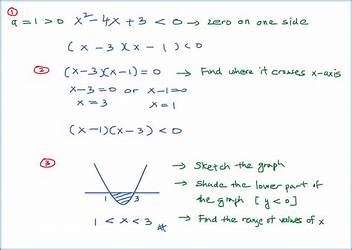 ①
a = 1 > 0 x² - 4x + 3 < 0 → zero on one side
(x - 3)(x - 1) < 0
② (x - 3)(x - 1) = 0 → Find where it crosses x-axis
x - 3 = 0 or x - 1 = 0
x = 3 x = 1
(x - 1)(x - 3) < 0
③
→ Sketch the graph
→ Shade the lower part of
the graph [y < 0]
1 3
1 < x < 3 → Find the range of values of x